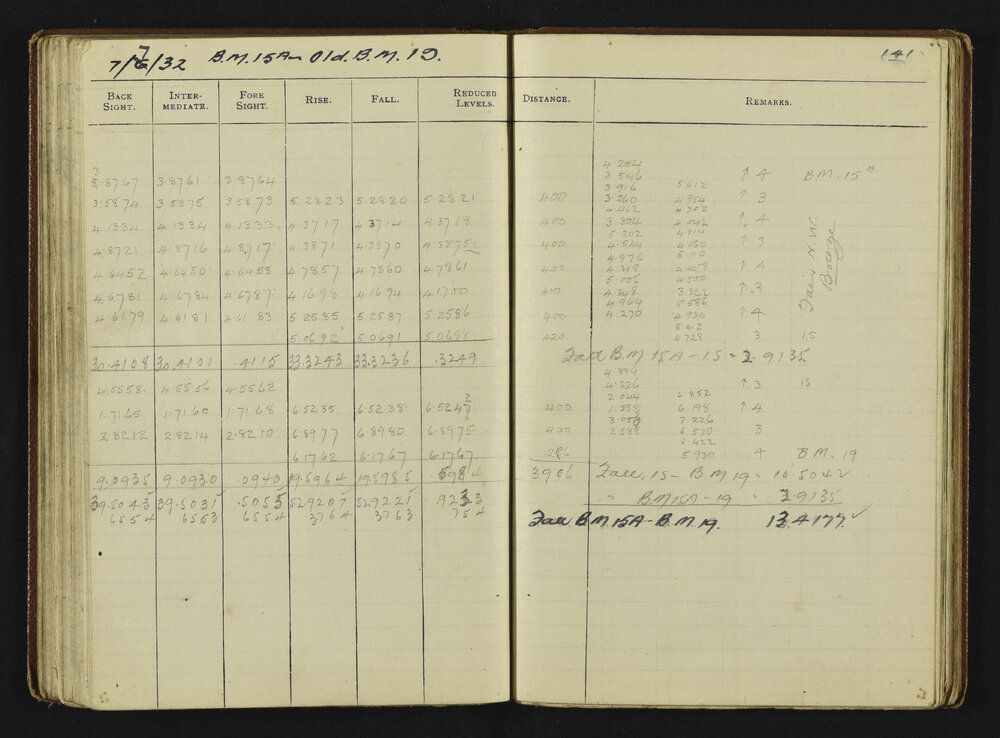 7/7/32 B.M. 15A – Old. B.M. 19. 141
BACK SIGHT. INTER-MEDIATE. FORE SIGHT. RISE. FALL. REDUCED LEVELS. DISTANCE. REMARKS.
4.204
3.8767 3.8761 3.8764 3.546 ↑ 4 B.M. 15A
3.916 5.612
3.5874 3.5875 3.5873 5.2823 5.2820 5.2821 400 3.260 4.954 ↑ 3
4.462 4.702
4.1334 4.1333 4.1333 4.3717 4.3714 4.3718 400 3.804 4.042 ↑ 4
5.202 4.714
4.8721 4.8716 4.8717 4.3871 4.3870 4.3875 400 4.544 4.060 ↑ 3
4.976 5.110
4.6452 4.6450 4.6458 4.7857 4.7860 4.7861 400 4.318 4.458 ↑ 4
5.006 4.500
4.6781 4.6784 4.6787 4.1698 4.1694 4.1700 410 4.348 3.842 ↑ 3
4.964 5.586
4.6179 4.6181 4.6183 5.2585 5.2587 5.2586 400 4.270 4.930 ↑ 4
5.412
5.0692 5.0691 5.0688 420 4.728 3 15
30.4108 30.4101 .4115 33.3243 33.3236 .3249 Fall B.M 15A – 15 = 2.9135
4.884
4.5558 4.5556 4.5562 4.226 ↑ 3 15
2.044 6.852
1.7165 1.7160 1.7168 6.5235 6.5238 6.5242 400 1.388 6.198 ↑ 4
3.056 7.226
2.8212 2.8214 2.8210 6.8977 6.8980 6.8975 400 2.588 6.570 3
6.422
6.1762 6.1767 6.1767 286 5.930 4 B.M. 19
9.0935 9.0930 .0940 19.5964 19.5985 .5984 3906 Fall, 15 – B M 19 = 10.5042
39.5043 39.5031 .5055 52.9207 52.9221 .9233 " B.M 15A – 19 " 2.9135
6554 6553 6554 3764 3763 754 Fall B.M. 15A – B.M. 19. 13.4177